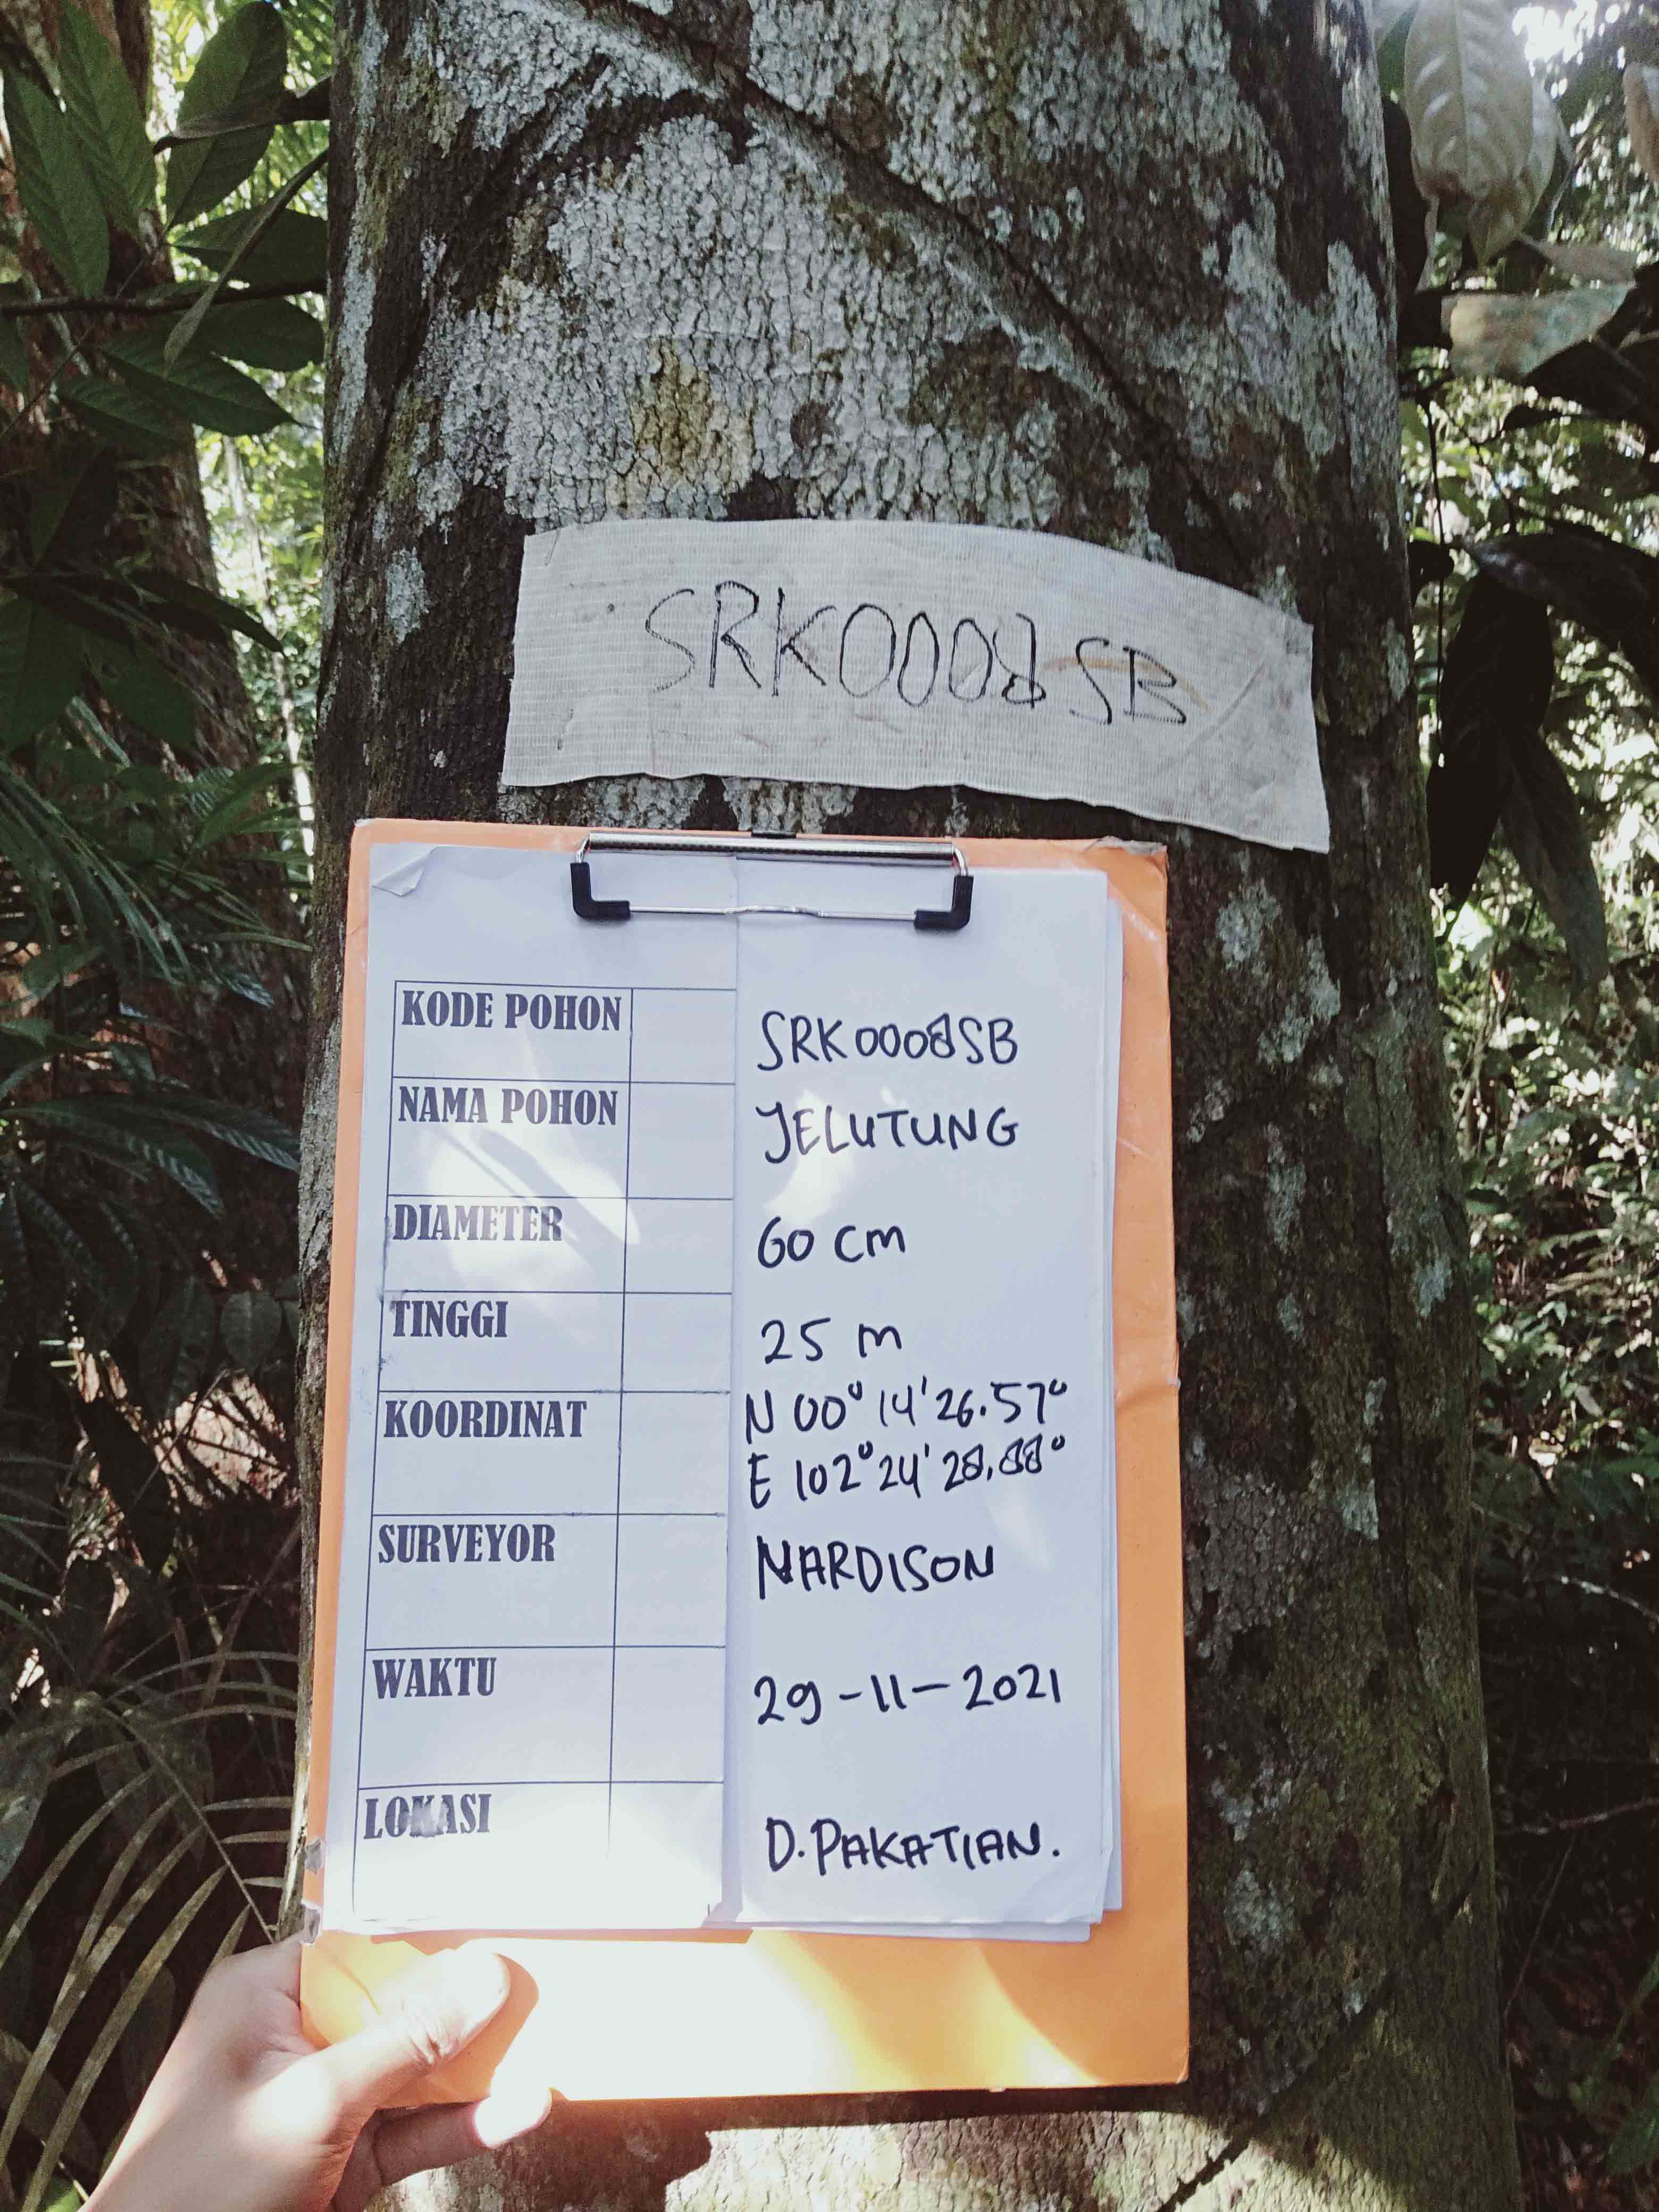 SRK0008SB
KODE POHON SRK0008SB
NAMA POHON JELUTUNG
DIAMETER 60 cm
TINGGI 25 m
KOORDINAT N 00° 14' 26.57°
E 102° 24' 28,88°
SURVEYOR NARDISON
WAKTU 29-11-2021
LOKASI D.PAKATIAN.